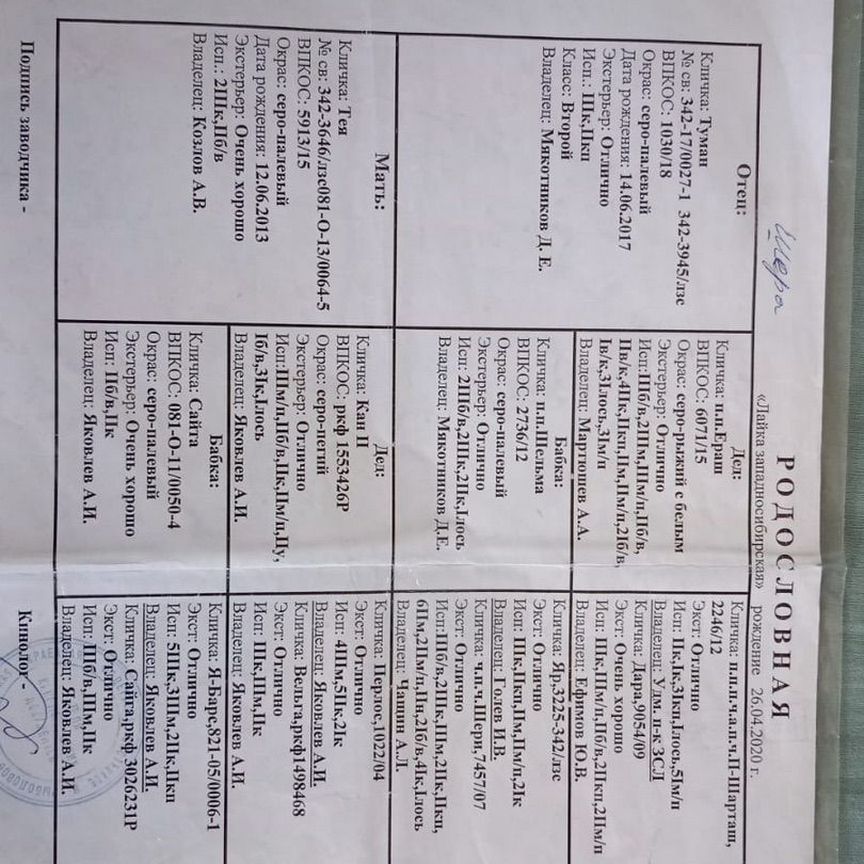 РОДОСЛОВНАЯ
«Лайка западносибирская» рождение 26.04.2020 г.
Шера
Отец:
Кличка: Туман
№ св: 342-17/0027-1 342-3945/лзс
ВПКОС: 1030/18
Окрас: серо-палевый
Дата рождения: 14.06.2017
Экстерьер: Отлично
Исп.: IIIк,IIкп
Класс: Второй
Владелец: Мякотников Д. Е.
Мать:
Кличка: Тея
№ св: 342-3646/лзс081-О-13/0064-5
ВПКОС: 5913/15
Окрас: серо-палевый
Дата рождения: 12.06.2013
Экстерьер: Очень хорошо
Исп.: 2IIIк,IIб/в
Владелец: Козлов А.В.
Дед:
Кличка: п.п.Ераш
ВПКОС: 6071/15
Окрас: серо-рыжий с белым
Экстерьер: Отлично
Исп:IIIб/в,2IIIм,IIIм/п,IIб/в,
IIв/к,4IIк,IIкп,IIм,IIм/п,2Iб/в,
Iв/к,3Iлось,3Iм/п
Владелец: Мартюшев А.А.
Бабка:
Кличка: п.п.Шельма
ВПКОС: 2736/12
Окрас: серо-палевый
Экстерьер: Отлично
Исп: 2IIIб/в,2IIIк,2IIк,Iлось
Владелец: Мякотников Д.Е.
Дед:
Кличка: Кан II
ВПКОС: ркф 1553426Р
Окрас: серо-пегий
Экстерьер: Отлично
Исп:IIIм/п,IIб/в,IIк,IIм/п,IIу,
Iб/в,3Iк,Iлось
Владелец: Яковлев А.И.
Бабка:
Кличка: Сайта
ВПКОС: 081-О-11/0050-4
Окрас: серо-палевый
Экстерьер: Очень хорошо
Исп: IIб/в,IIк
Владелец: Яковлев А.И.
Кличка: п.п.п.ч.а.п.ч.П-Шарташ,
2246/12
Экст: Отлично
Исп: IIк,Iк,3Iкп,Iлось,5Iм/п
Владелец: Удм. п-к ЗСЛ
Кличка: Дара,9054/09
Экст: Очень хорошо
Исп: IIIк,IIIм/п,IIб/в,2IIкп,2IIм/п
Владелец: Ефимов Ю.В.
Кличка: Яр,3225-342/лзс
Экст: Отлично
Исп: IIIк,IIкп,IIм,IIм/п,2Iк
Владелец: Голев И.В.
Кличка: ч.п.ч.Шери,7457/07
Экст: Отлично
Исп:IIIб/в,2IIIк,IIIм,2IIк,IIкп,
6IIм,2IIм/п,IIп,2Iб/в,4Iк,Iлось
Владелец: Чащин А.Л.
Кличка: Перлос,1022/04
Экст: Отлично
Исп: 4IIм,5IIк,2Iк
Владелец: Яковлев А.И.
Кличка: Вельга,ркф1498468
Экст: Отлично
Исп: IIIк,IIIм,IIк
Владелец: Яковлев А.И.
Кличка: Я-Барс,821-05/0006-1
Экст: Отлично
Исп: 5IIIк,3IIIм,2IIк,IIкп
Владелец: Яковлев А.И.
Кличка: Сайга,ркф 3026231Р
Экст: Отлично
Исп: IIIб/в,IIIм,IIк
Владелец: Яковлев А.И.
Подпись заводчика -
Кинолог -